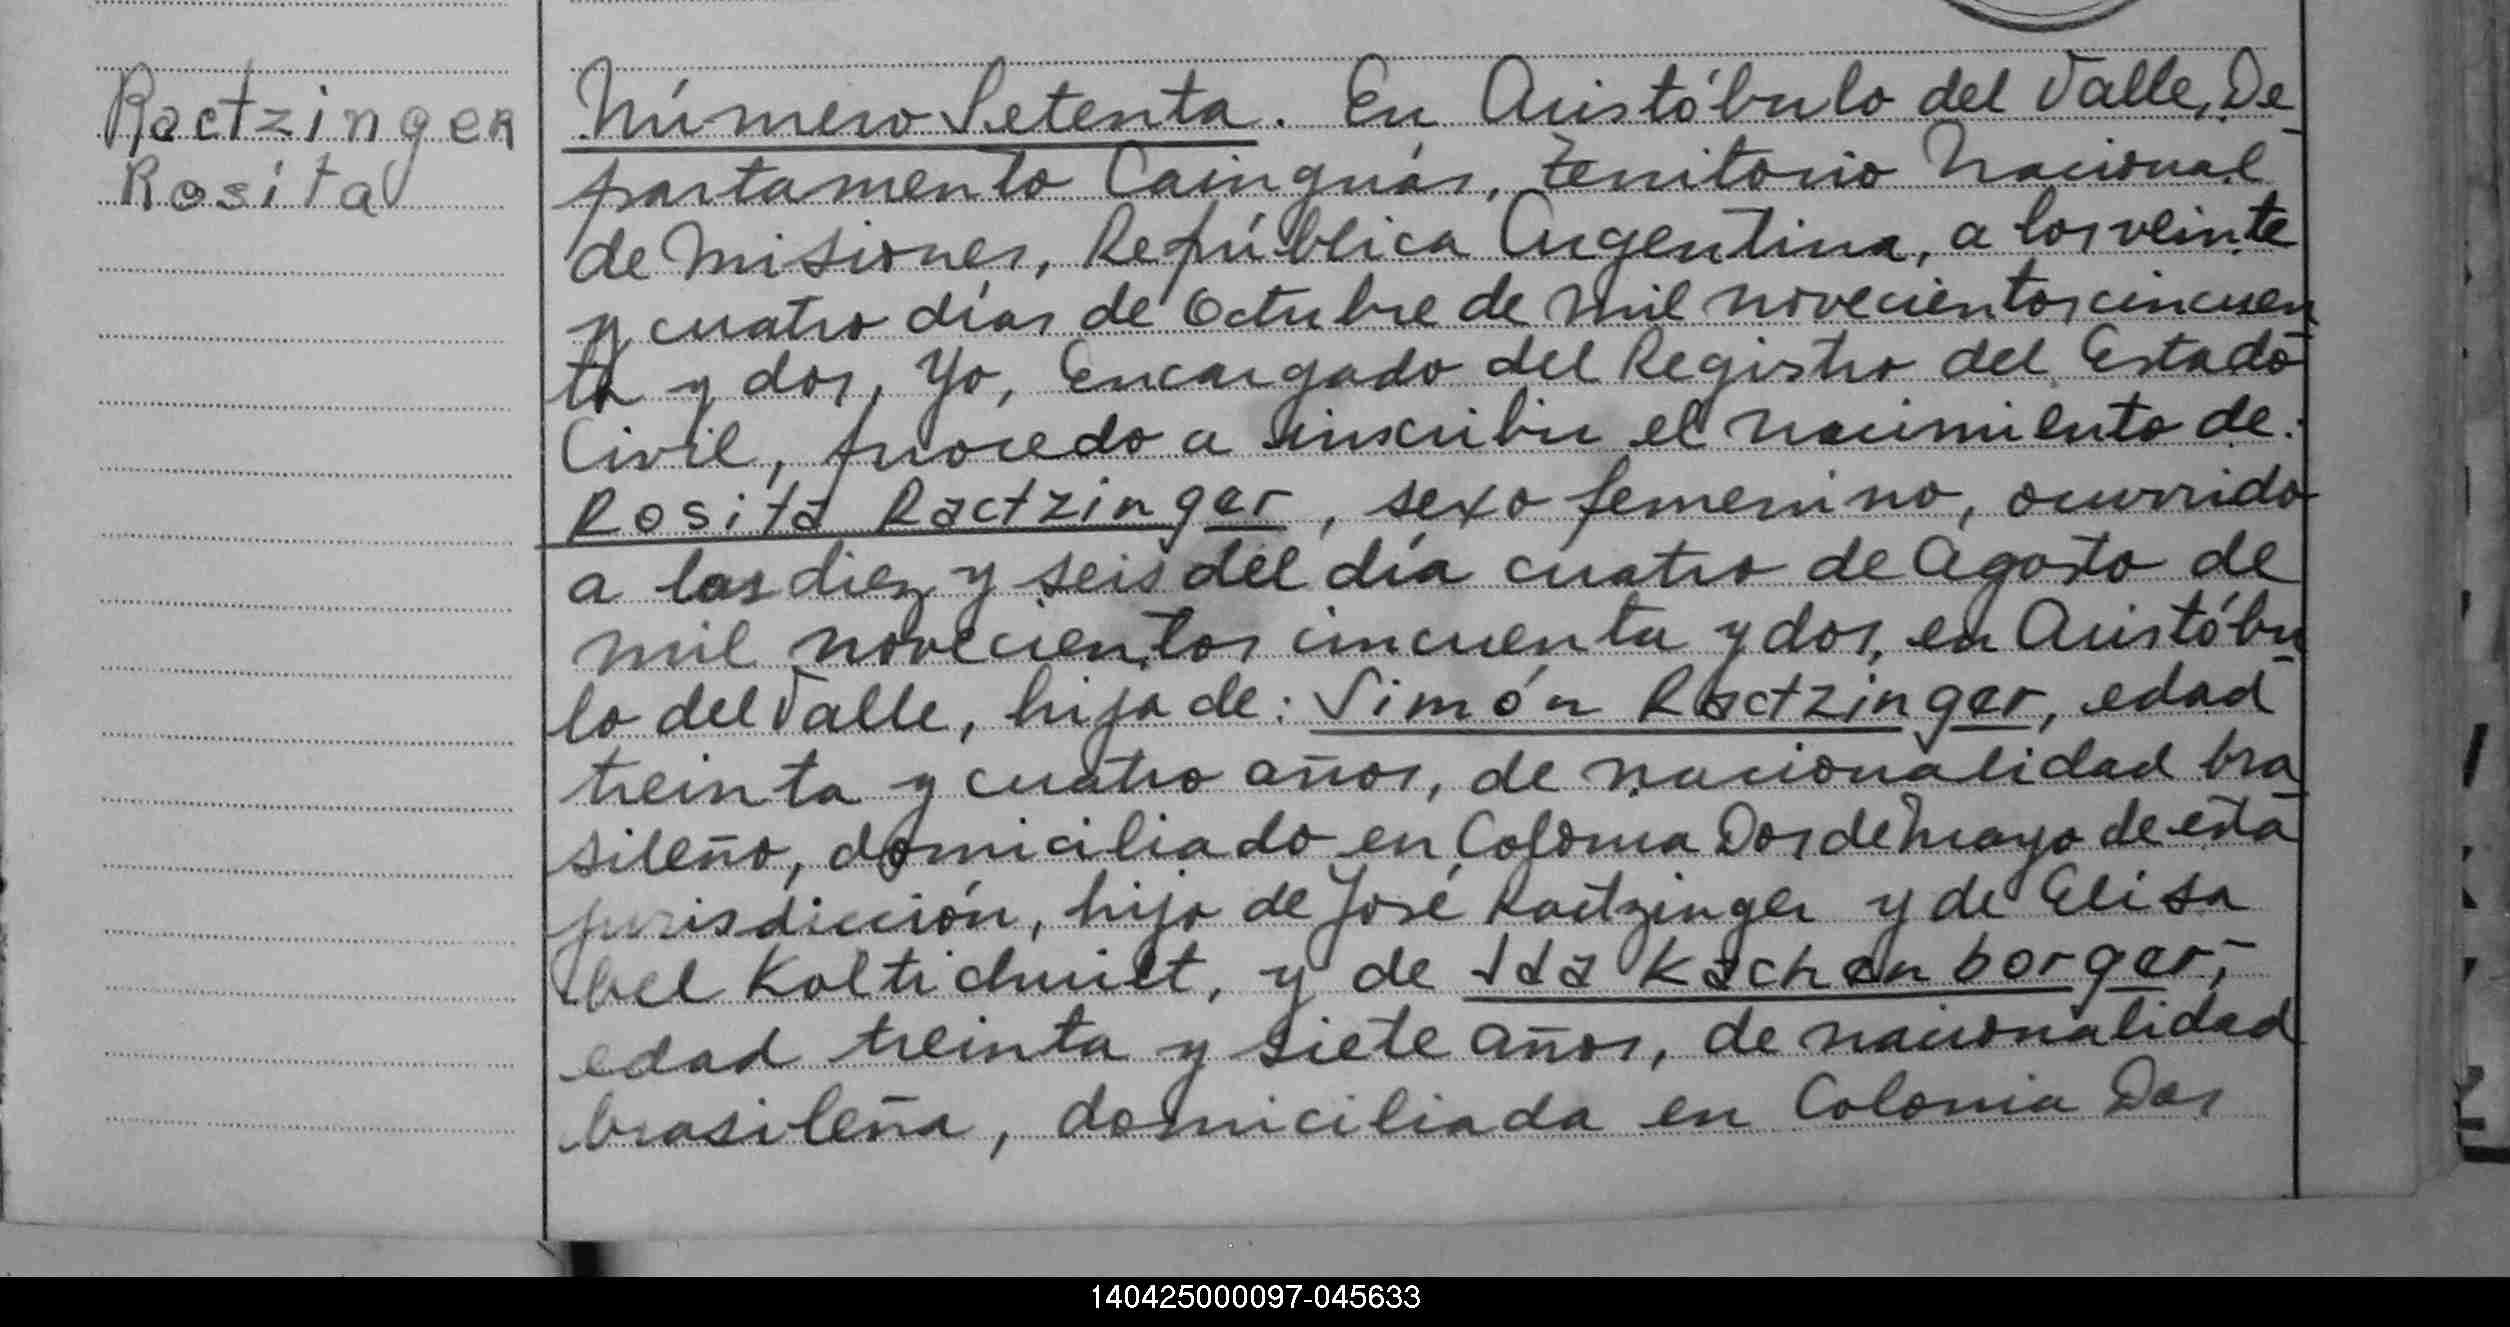 Ractzinger
Rosita
Número Setenta. En Aristóbulo del Valle, De-
partamento Cainguás, Territorio Nacional
de Misiones, República Argentina, a los veinte
y cuatro días de Octubre de mil novecientos cincuen-
ta y dos, Yo, Encargado del Registro del Estado
Civil, procedo a inscribir el nacimiento de:
Rosita Ractzinger, sexo femenino, ocurrido
a las diez y seis del día cuatro de Agosto de
mil novecientos cincuenta y dos, en Aristóbu-
lo del Valle, hija de: Simón Ractzinger, edad
treinta y cuatro años, de nacionalidad bra-
sileño, domiciliado en Colonia Dos de Mayo de esta
jurisdicción, hijo de José Ractzinger y de Elisa
bel, y de Ida Kachenborger,-
edad treinta y siete años, de nacionalidad
brasileña, domiciliada en Colonia Dos
140425000097-045633